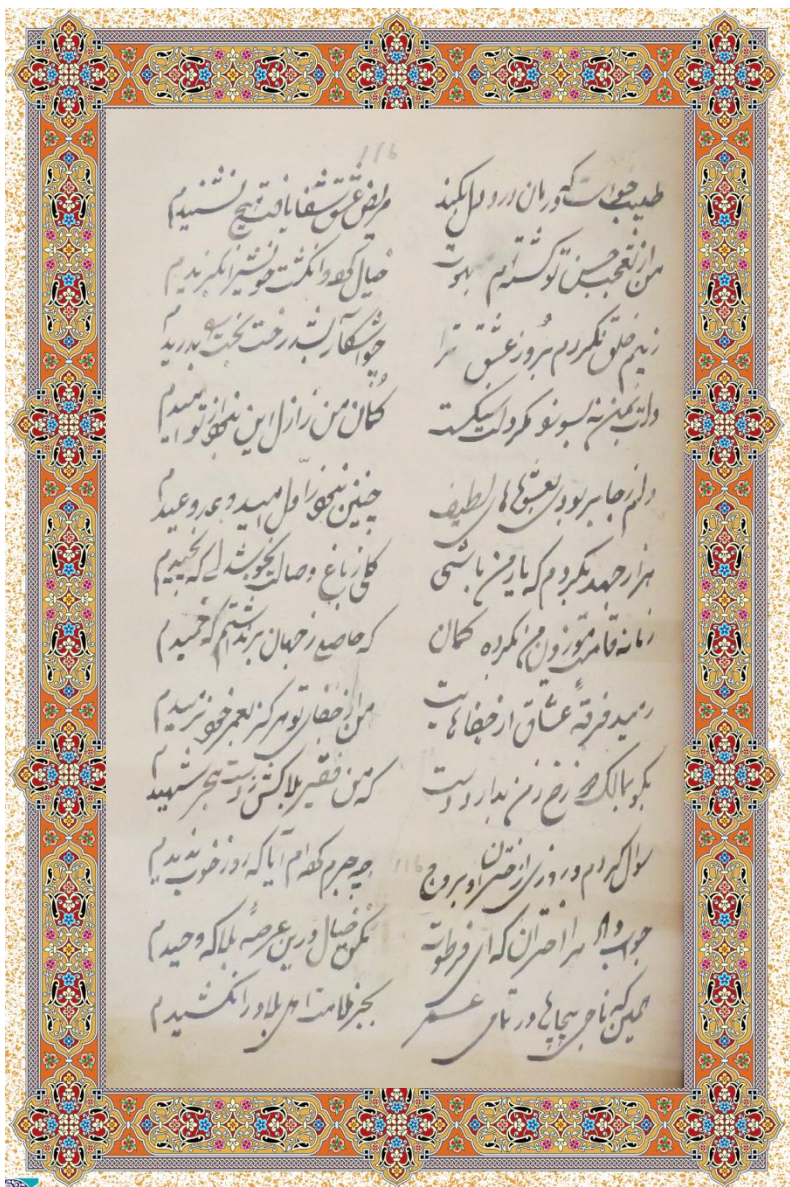 116
طبیب خواست که درمان درد دل بکند مریض عشق شفا یافت هیچ نشنیدم
من از تعجب حسن تو گشته‌ام مبهوت خیال کرده و انگشت خویش را بگزیدم
ز بیم خلق نکردم بروز عشق ترا چو آشکار بشد رخت بخت بدریدم
دلت بمن نه بسوزد مگر دلت سنگست گمان من ز ازل این نبود از تو امیدم
دلم ز جا بربودی بعشوهای لطیف چنین نبود ز اول امید و وعد و وعیدم
هزار جهد بکردم که یار من باشی گلی ز باغ وصالت نچیدم
زمانه قامت موزون من بکرده کمان که حاصلی ز جهان برنداشتم که خمیدم
رمید فرقه عشاق از جفاهایت من از جفای تو هرگز بعمر خود نرمیدم
بگو بمالک دوزخ ز من بدارد دست که من فقیر بلاکش ز دست هجر شهیدم
سوال کردم و روزی ز اختران و بروج چه جرم کرده‌ام آیا که روز خوب ندیدم
116
جواب داد مرا اختران که ای فرطوت مکن خیال درین عرصهٔ بلا که وحیدم
همین که ناجی بیچاره در تمامی عمر بجز ملامت اهل بلاد را نکشیدم